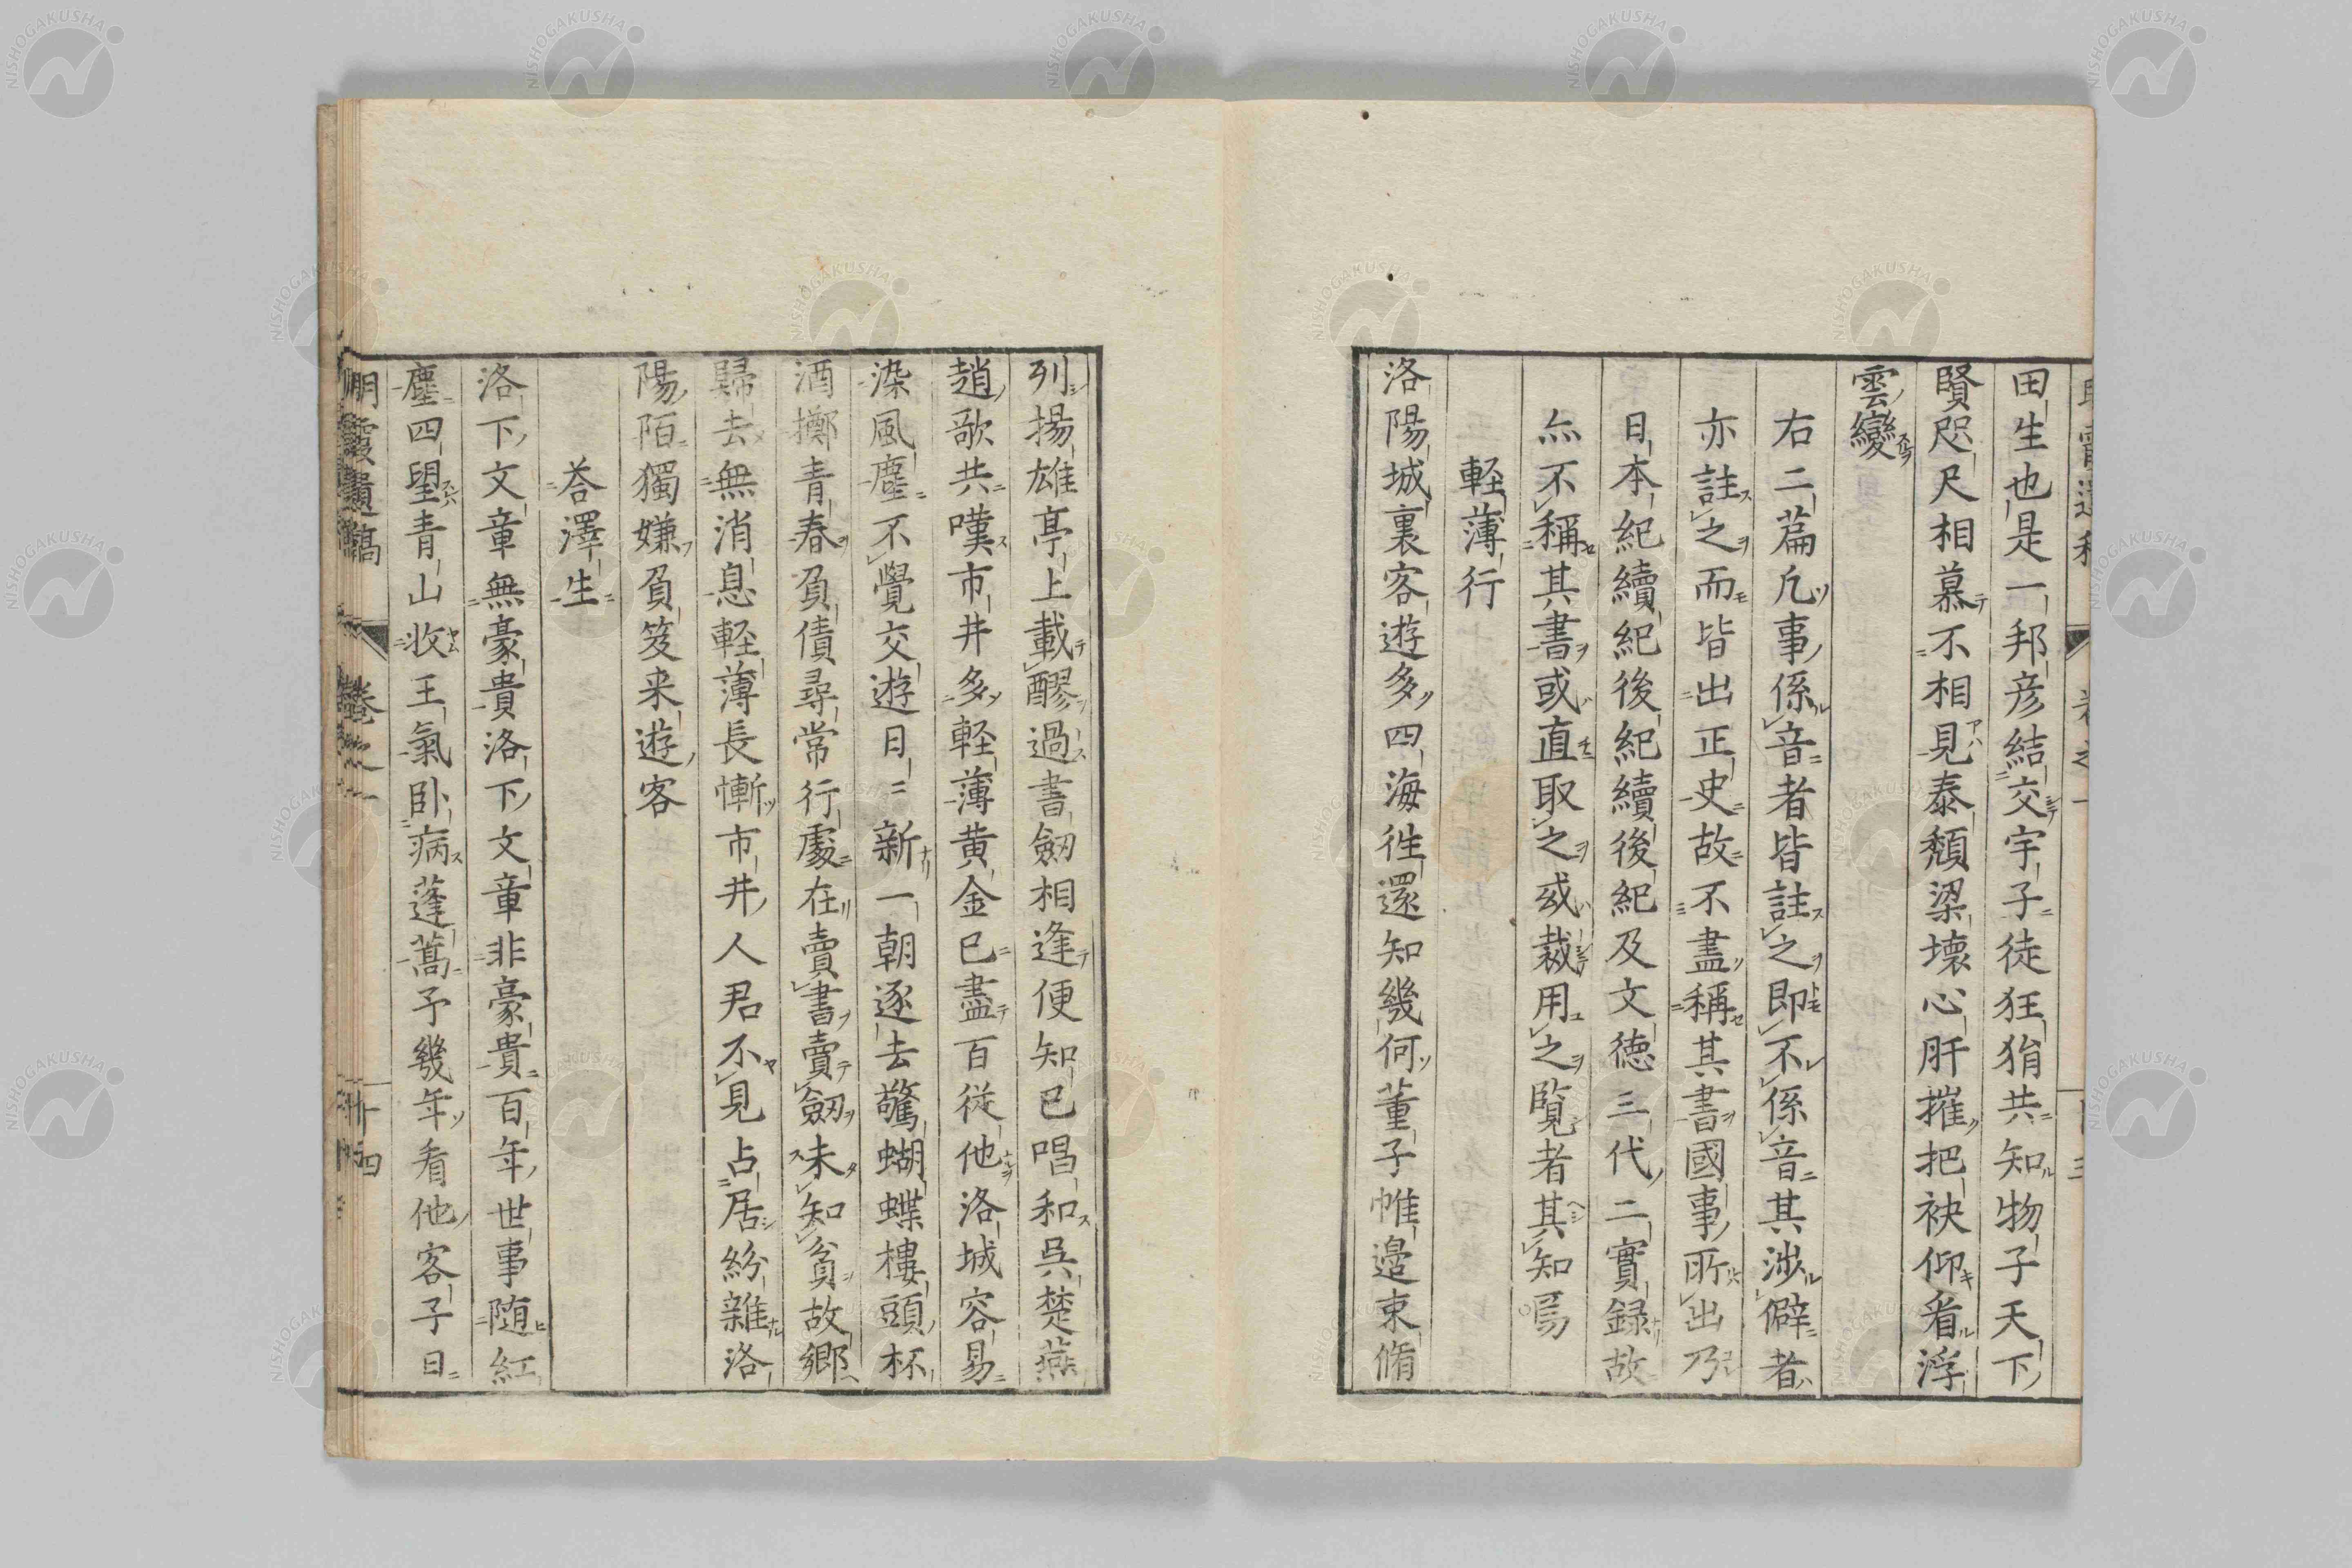 田生也是一邦彦結交宇子徒狂狷共知物子天下
賢咫尺相慕不相見泰頽梁壊心肝摧把袂仰看浮
雲變
右二篇凢事係音者皆註之即不係音其渉僻者
亦註之而皆出正史故不盡稱其書國事所出乃
日本紀續紀後紀續後紀及文徳三代二實録故
亦不稱其書或直取之或裁用之覧者其知焉
軽薄行
洛陽城裏客遊多四海徃還知幾何董子帷邉束脩
列揚雄亭上載醪過書劔相逢便知已唱和呉楚燕
趙歌共嘆市井多軽薄黄金已盡百従他洛城容易
染風塵不覺交遊日〻新一朝逐去驚蝴蝶樓頭杯
酒擲青春負債尋常行處在賣書賣劔未知貧故郷
歸去無消息軽薄長慚市井人君不見占居紛雜洛
陽陌獨嫌負笈来遊客
荅澤生
洛下文章無豪貴洛下文章非豪貴百年世事随紅
塵四望青山收王氣卧病蓬蒿予幾年看他客子日
朋霞遺稿 巻之一 十四
NISHOGAKUSHA